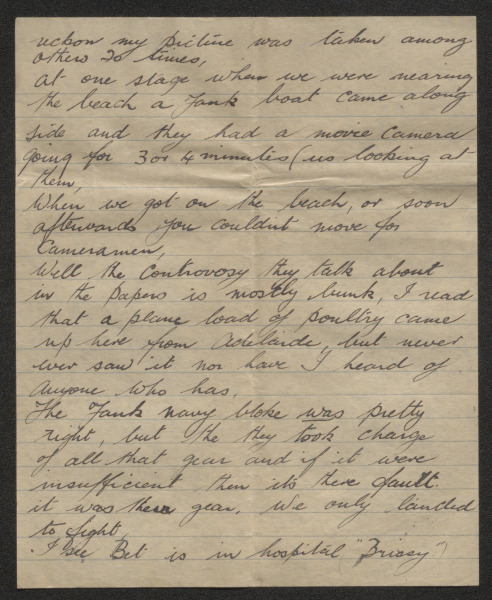 reckon my picture was taken among
others 20 times,
at one stage when we were nearing
the beach a Yank boat came along
side and they had a movie camera
going for 3 or 4 minutes (us looking at
them,
When we got on the beach, or soon
afterwards you couldnt move for
Cameramen,
Well the Controvosy they talk about
in the papers is mostly bunk, I read
that a plane load of poultry came
up here from Adelaide, but never
ever saw it nor have I heard of
anyone who has,
The Yank navy bloke was pretty
right, but the they took charge
of all that gear and if it were
insufficient then its there fault
it was there gear, We only landed
to fight,
I see Bet is in hospital "Brissy")